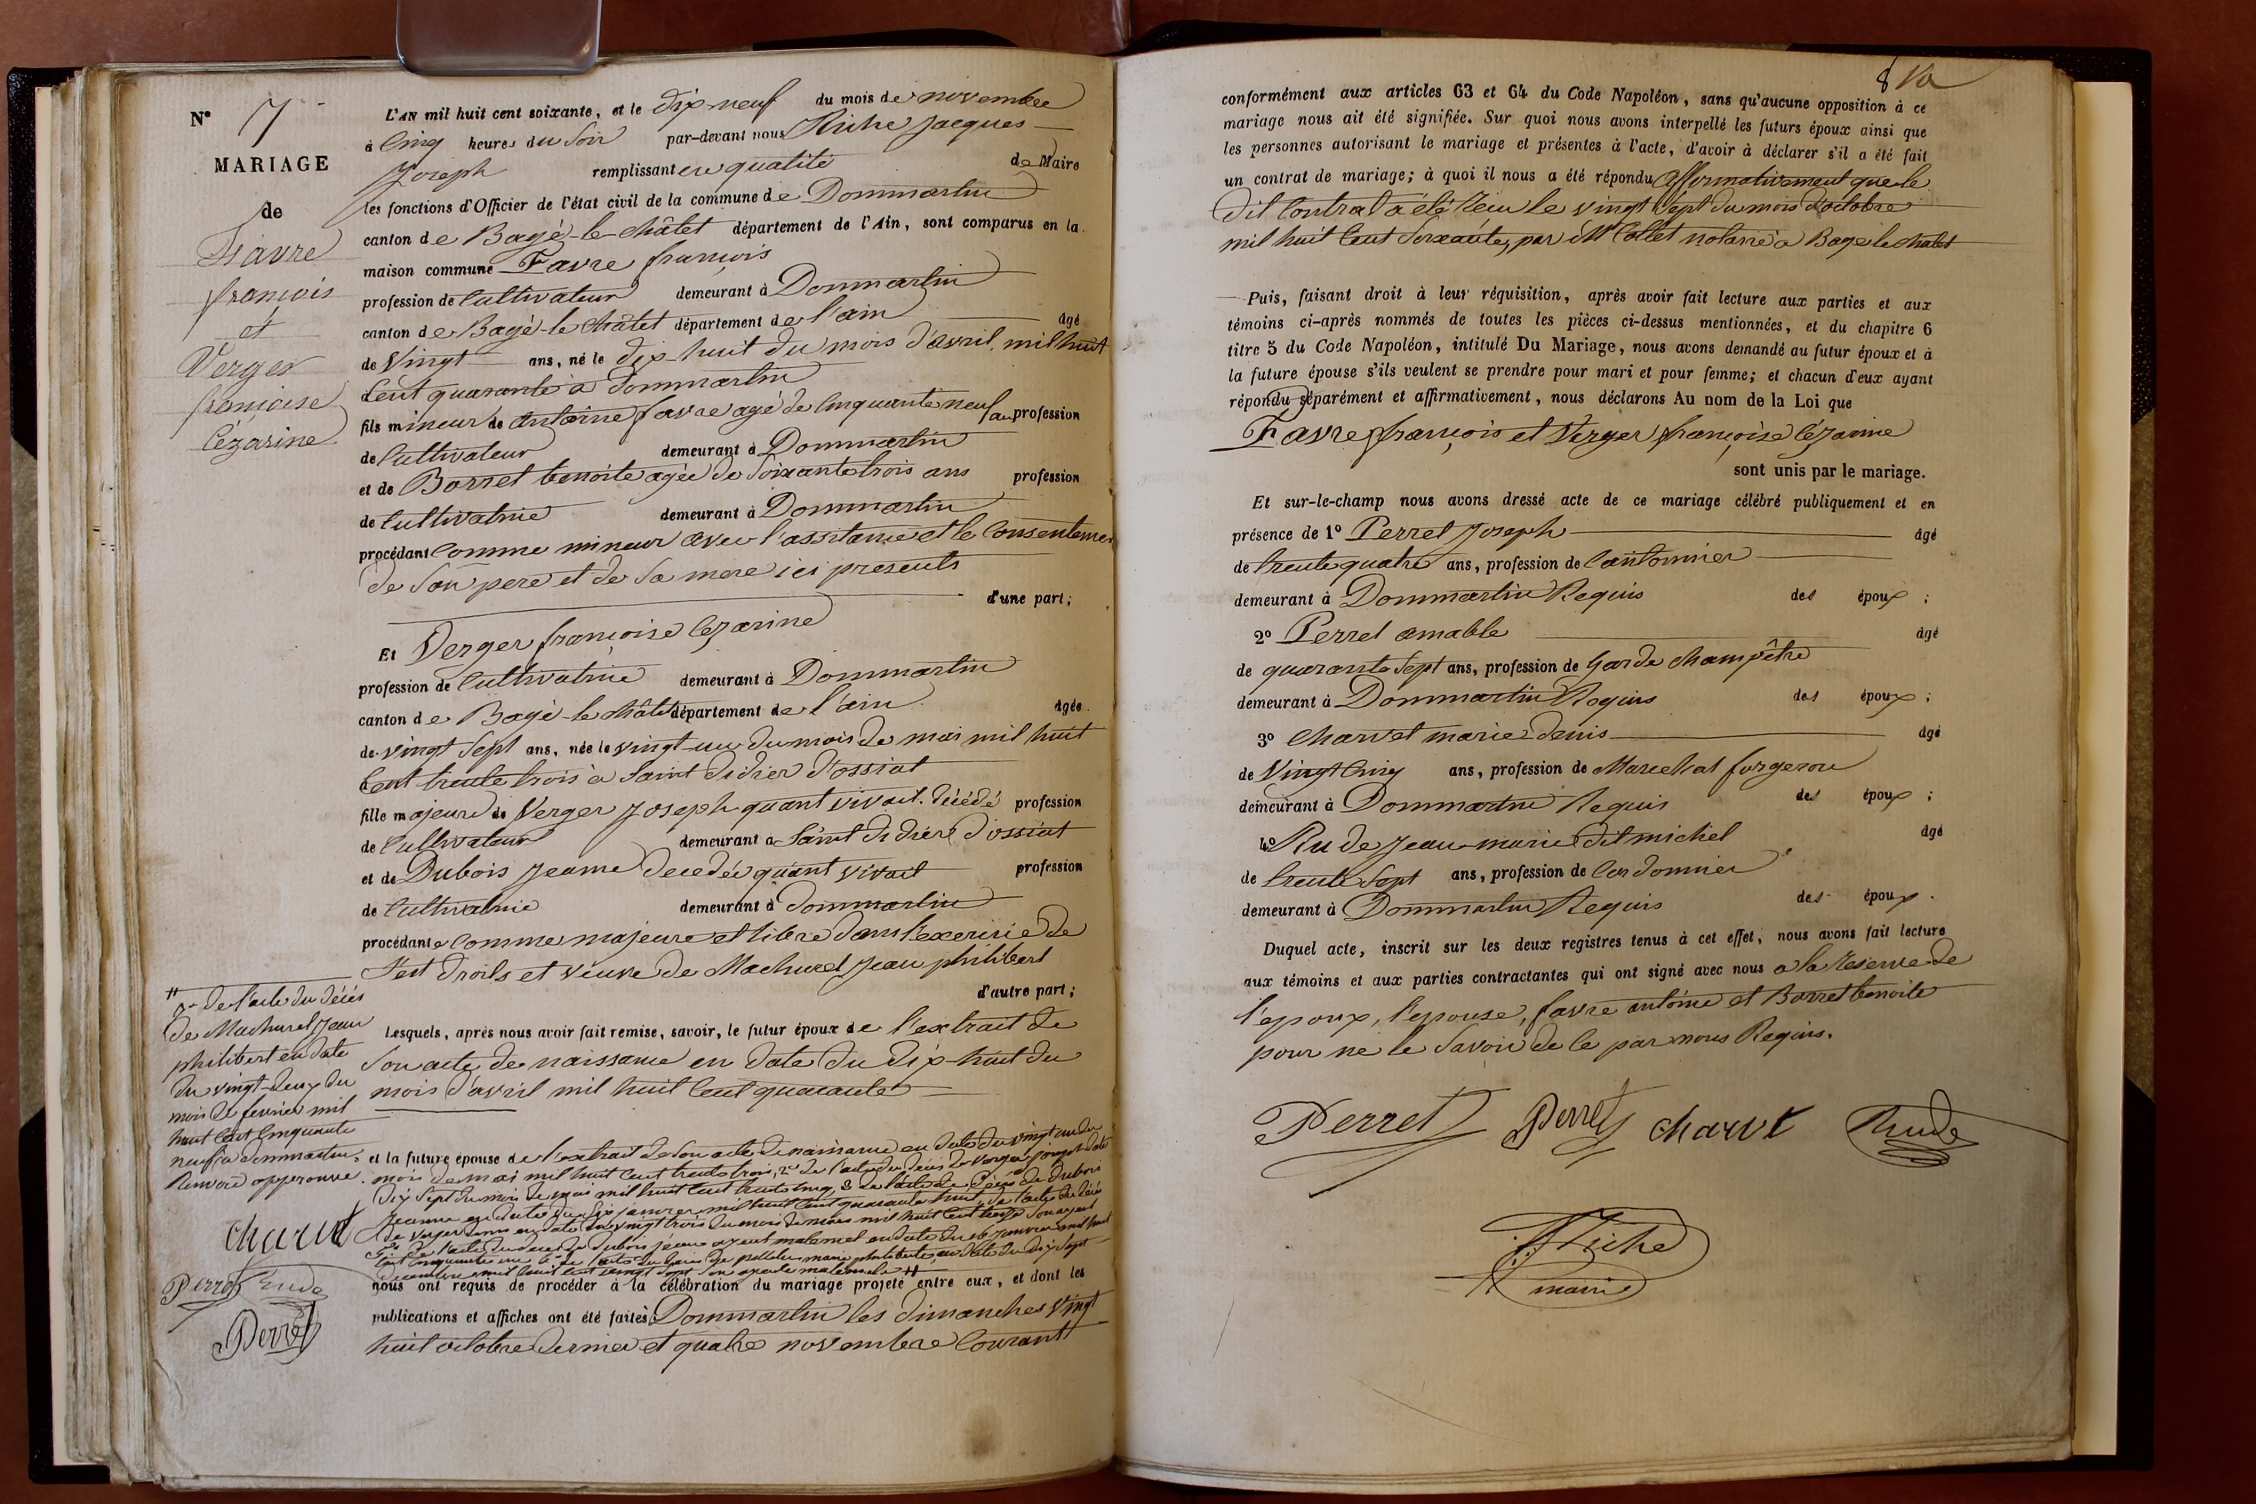 N° 7
MARIAGE
de
Favre
françois
et
Verger
françoise
Cézarine
L'AN mil huit cent soixante, et le dix-neuf du mois de novembre
à Cinq heures du Soir par-devant nous Riche Jacques
Joseph remplissant en qualité de Maire
les fonctions d'Officier de l'état civil de la commune de Dommartin
canton de Bagé-le-châtel département de l'Ain, sont comparus en la
maison commune Favre françois
profession de Cultivateur demeurant à Dommartin
canton de Bagé-le-châtel département de l'ain âgé
de Vingt ans, né le dix-huit du mois d'avril mil huit
Cent quarante à Dommartin
fils mineur de Antoine favre agé de Cinquante neuf an profession
de Cultivateur demeurant à Dommartin
et de Borret benoite agée de Soixante trois ans profession
de Cultivatrice demeurant à Dommartin
procédant Comme mineur avec l'assitance et le Consentemen
de Son pere et de Sa mere ici presents
d'une part;
Et Verger françoise Cezarine
profession de Cultivatrice demeurant à Dommartin
canton de Bagé-le-châtel département de l'ain âgée
de vingt Sept ans, née le vingt-un du mois de mai mil huit
Cent trente trois à Saint didier d'ossiat
fille majeure de Verger Joseph quant vivait décédé profession
de Cultivateur demeurant à Saint didier d'ossiat
et de Dubois Jeanne decedée quant vivait profession
de Cultivatrice demeurant à Dommartin
procédante Comme majeure et libre dans l'exercice de
Sest droits et veuve de Machurel Jean philibert
d'autre part;
Lesquels, après nous avoir fait remise, savoir, le futur époux de l'extrait de
Son acte de naissance en date du dix-huit du
mois d'avril mil huit Cent quarante
et la future épouse de l'extrait de Son acte de naissance en date du vingt un du
mois de mai mil huit Cent trente trois, 2° de l'acte du décès de Verger Joseph date
dix Sept du mois de mai mil huit Cent trente cinq, 3 de l'acte de Décès de Dubois
Jeanne en date du Six janvier mil huit Cent quarante huit, de l'acte du décès
de Verger Denis en date du vingt trois du mois de mars mil huit Cent treize Son ayeul
5° de l'acte du décès de dubois Jeanne ayeul maternel en date du 26 janvier mil huit
Cent cinquante un 6° de l'acte du décès de marie philiberte en date du dix Sept
décembre mil huit Cent vingt Sept Son ayeule maternelle #
nous ont requis de procéder à la célébration du mariage projeté entre eux, et dont les
publications et affiches ont été faites à Dommartin les dimanches Vingt
huit octobre dernier et quatre novembre Courant
# de l'acte du décés
de Machurel Jean
philibert en date
du vingt-deux du
mois de fevrier mil
huit Cent Cinquante
neuf a dommartin.
Renvoi approuvé.
Charvet
Perret Rude
Perret
8
conformément aux articles 63 et 64 du Code Napoléon, sans qu'aucune opposition à ce
mariage nous ait été signifiée. Sur quoi nous avons interpellé les futurs époux ainsi que
les personnes autorisant le mariage et présentes à l'acte, d'avoir à déclarer s'il a été fait
un contrat de mariage; à quoi il nous a été répondu affirmativement que le
dit Contrat a été Reçu le vingt Sept du mois d'octobre
mil huit Cent Soixante, par Mr Collet notaire a Bagé le chatel
Puis, faisant droit à leur réquisition, après avoir fait lecture aux parties et aux
témoins ci-après nommés de toutes les pièces ci-dessus mentionnées, et du chapitre 6
titre 5 du Code Napoléon, intitulé Du Mariage, nous avons demandé au futur époux et à
la future épouse s'ils veulent se prendre pour mari et pour femme; et chacun d'eux ayant
répondu séparément et affirmativement, nous déclarons Au nom de la Loi que
Favre françois et Verger françoise Cézarine
sont unis par le mariage.
Et sur-le-champ nous avons dressé acte de ce mariage célébré publiquement et en
présence de 1° Perret Joseph âgé
de trente quatre ans, profession de Cantonnier
demeurant à Dommartin Requis des époux ;
2° Perret amable âgé
de quarante Sept ans, profession de Garde champêtre
demeurant à Dommartin Requis des époux ;
3° Charvet marie denis âgé
de Vingt Cinq ans, profession de Marechal forgeron
demeurant à Dommartin Requis des époux ;
4° Rude Jean-marie dit michel âgé
de trente Sept ans, profession de Cordonnier
demeurant à Dommartin Requis des époux.
Duquel acte, inscrit sur les deux registres tenus à cet effet, nous avons fait lecture
aux témoins et aux parties contractantes qui ont signé avec nous a la Reserve de
l'epoux, l'epouse, favre antoine et Borret benoite
pour ne le Savoir de le par nous Requis.
Perret Perret Charvet Rude
J Riche
maire